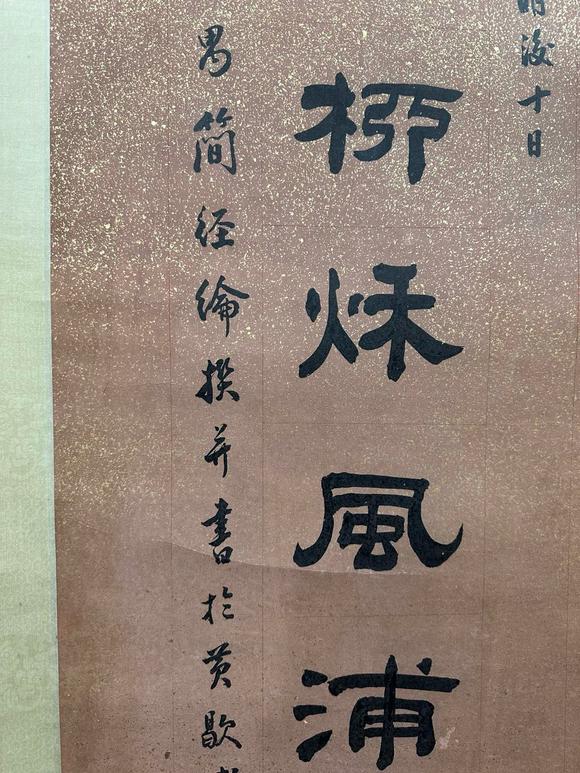 明後十日
柳秌風浦
禺簡經綸撰并書於黃歇